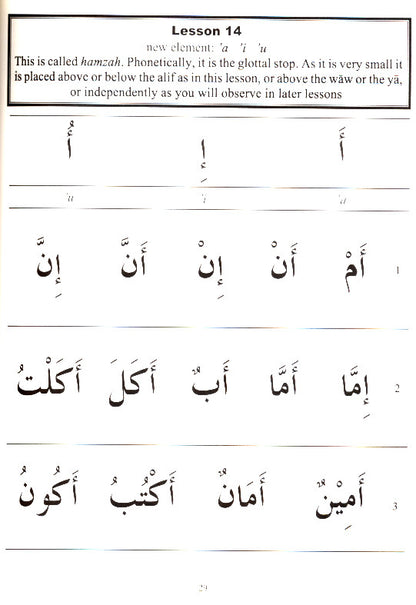 Lesson 14
new element: 'a 'i 'u
This is called hamzah. Phonetically, it is the glottal stop. As it is very small it
is placed above or below the alif as in this lesson, or above the wāw or the yā,
or independently as you will observe in later lessons
أَ إِ أُ
'a 'i 'u
1 أَمْ أَنْ إِنْ أَنَّ إِنَّ
2 إِمَّا أَمَّا أَبٌ أَكَلَ أَكَلْتُ
3 أَمِيْنٌ أَمَانٌ أَكْتُبُ أَكُونُ